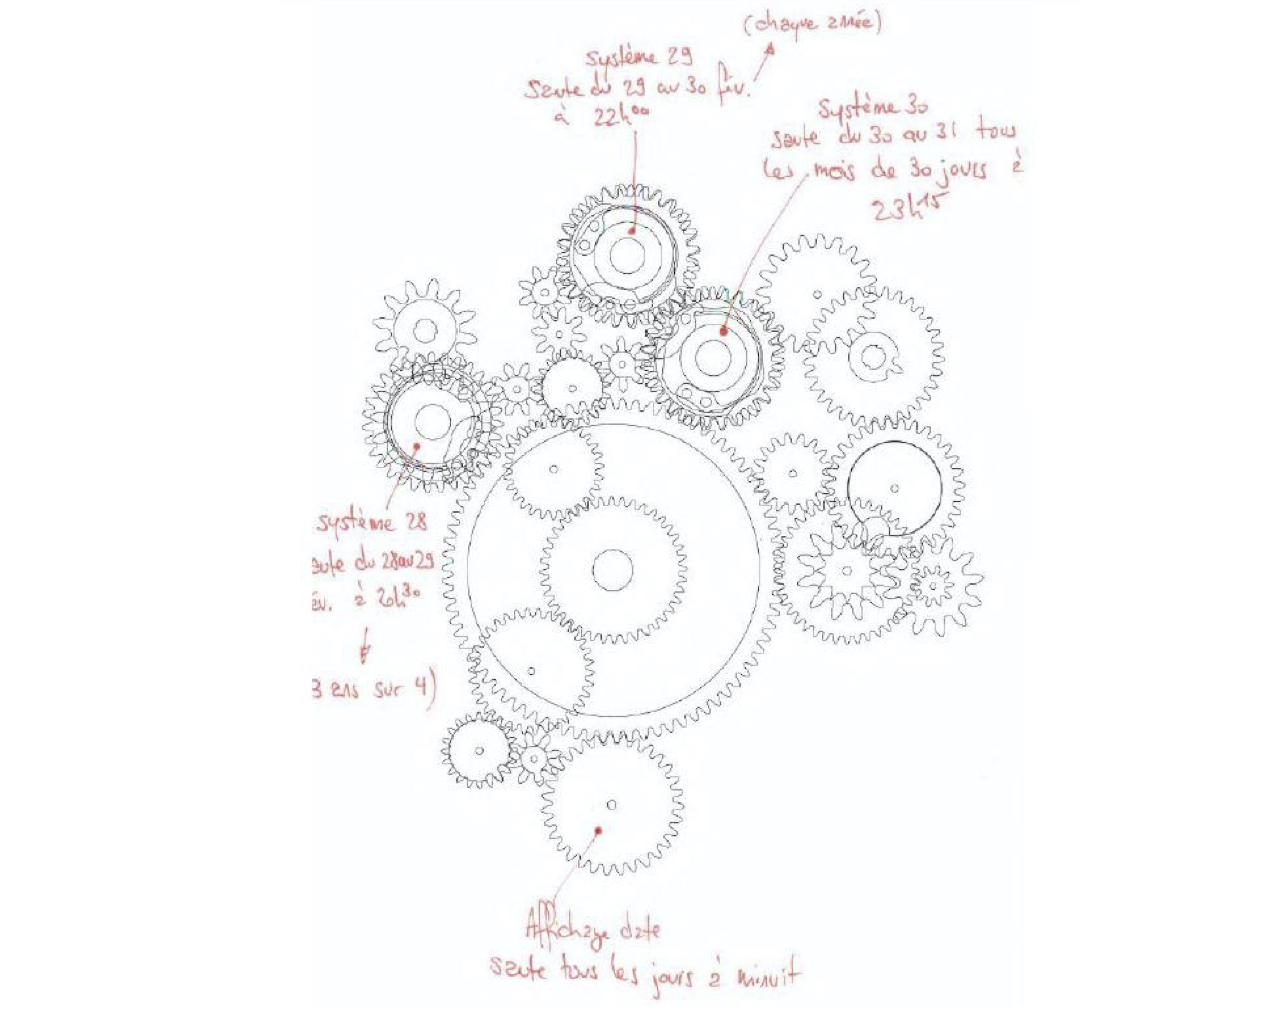 (chaque année)
Système 29
saute du 29 au 30 fév.
à 22h00
Système 30
saute du 30 au 31 tous
les mois de 30 jours à
23h15
Système 28
aute du 28 au 29
év. à 20h30
3 ans sur 4)
Affichage date
saute tous les jours à minuit